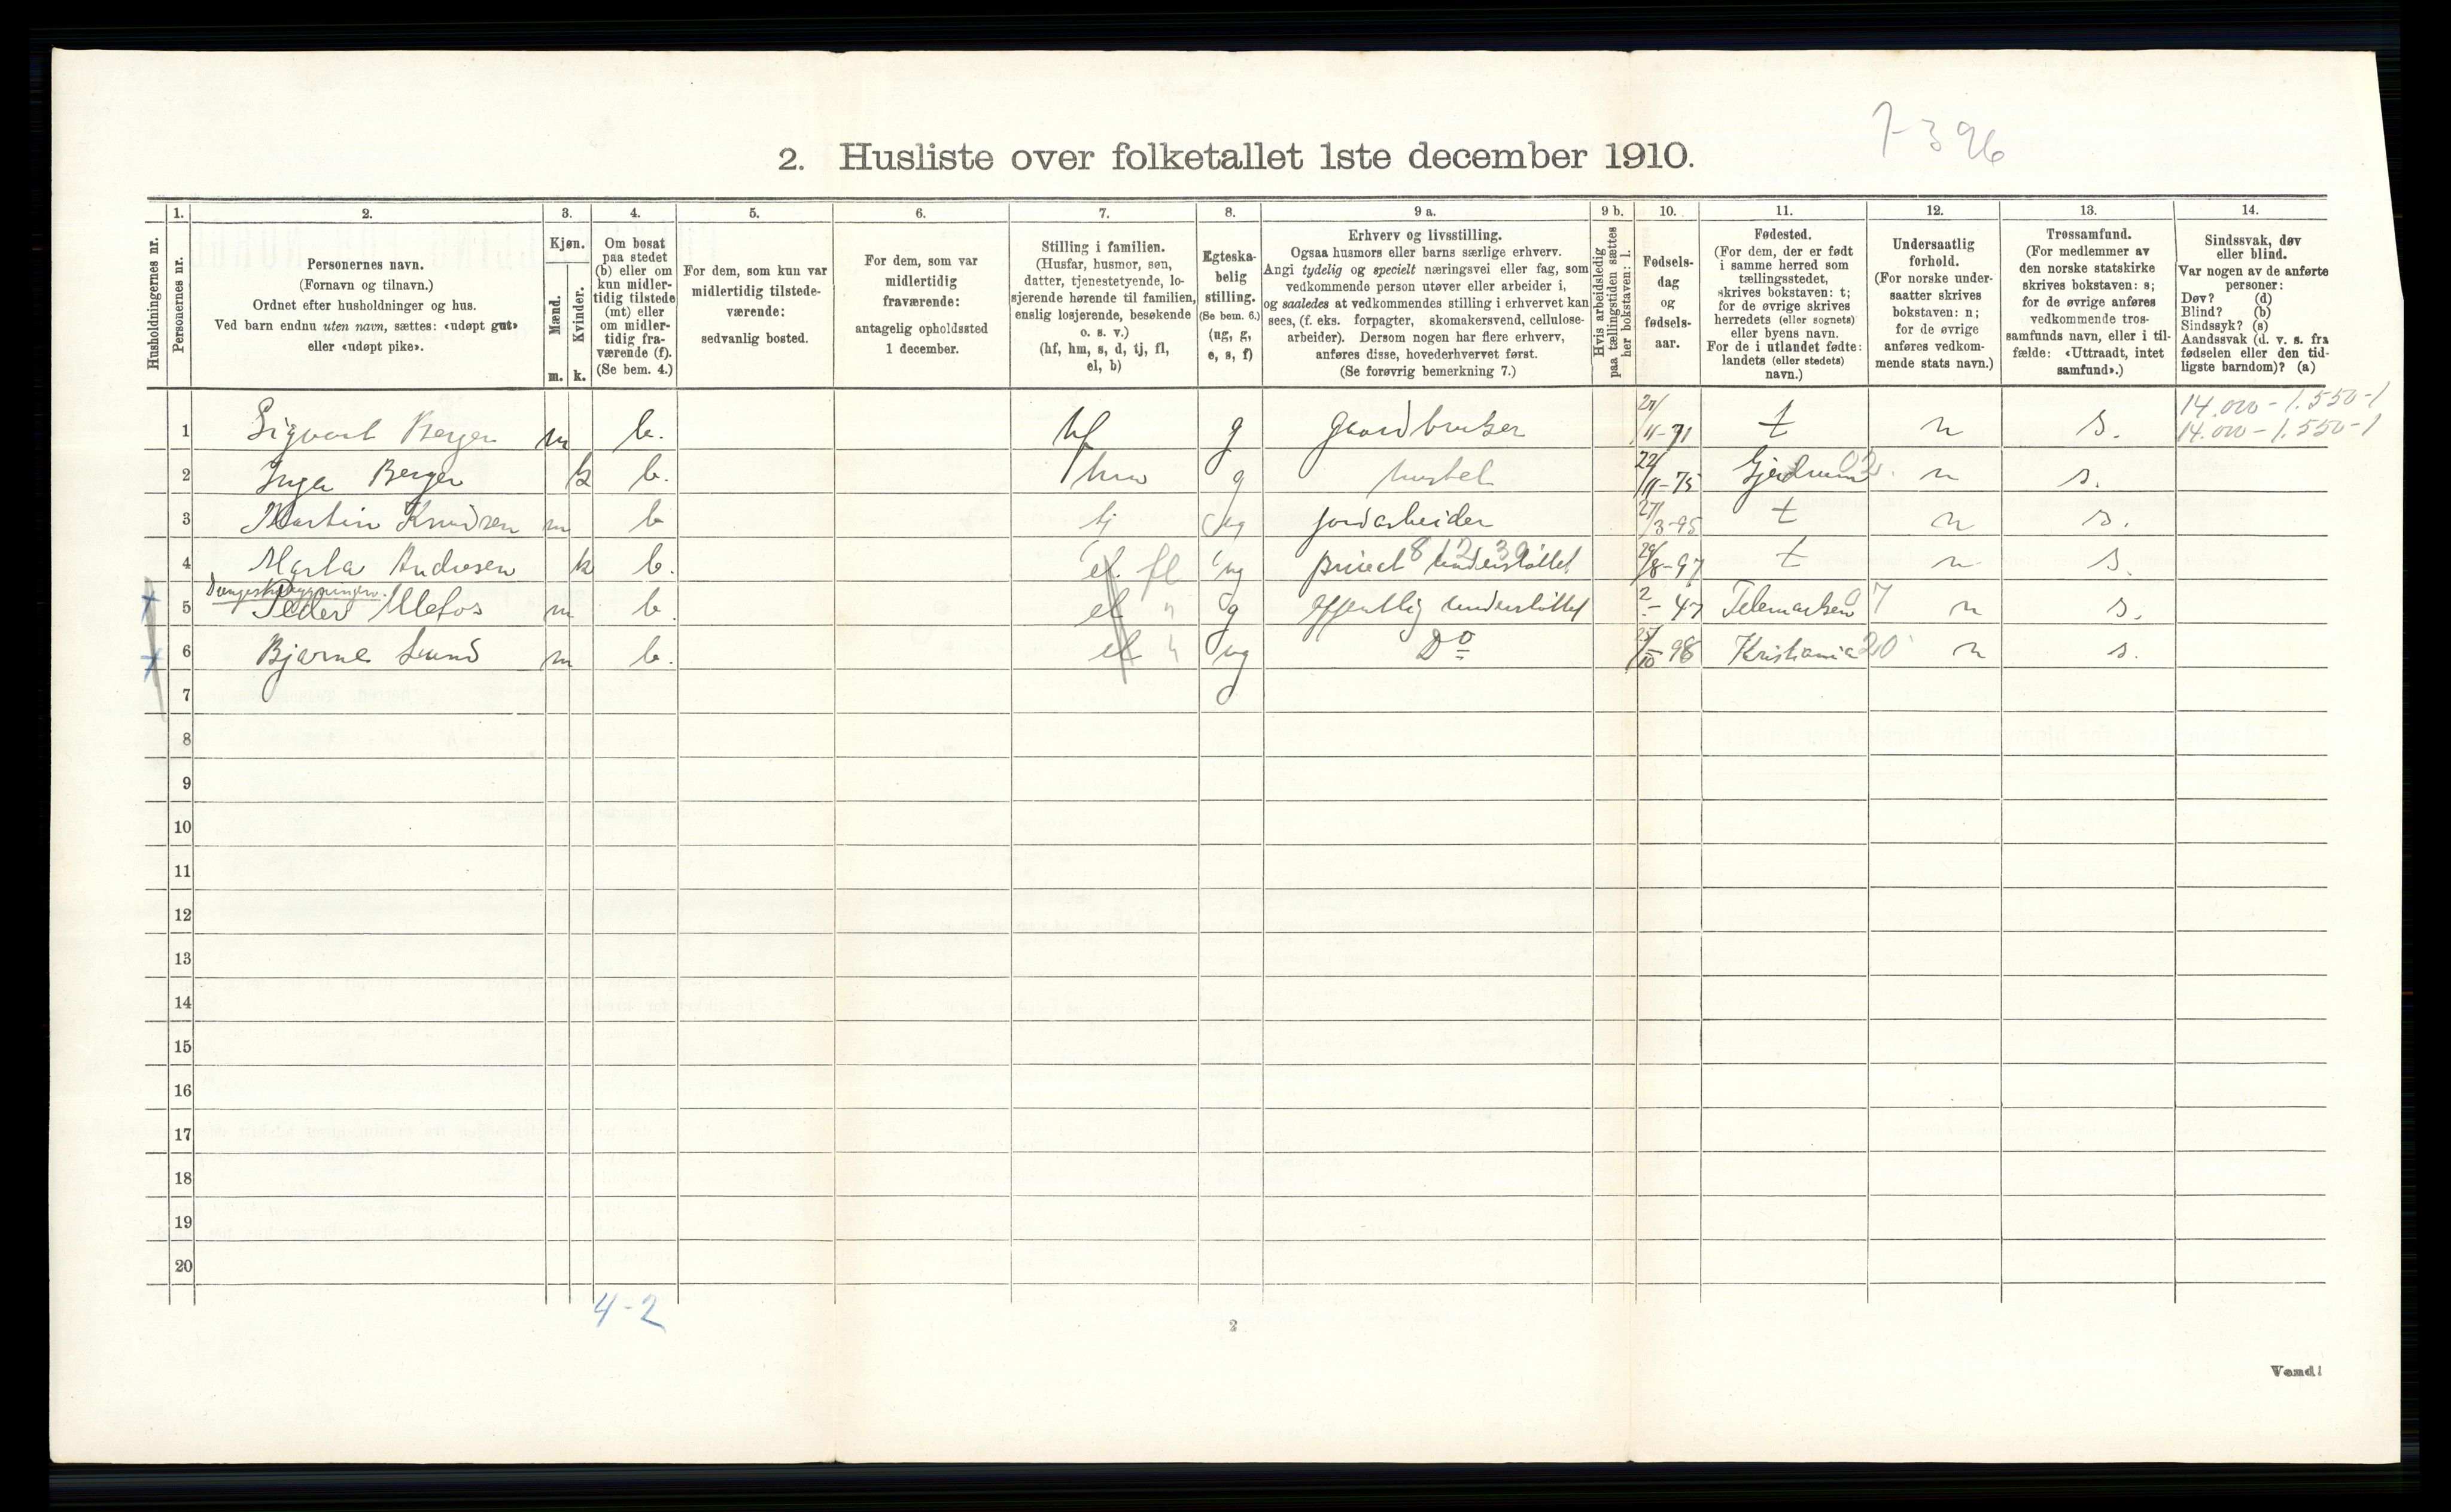 7-396
2. Husliste over folketallet 1ste december 1910.
1. 2. 3. 4. 5. 6. 7. 8. 9 a. 9 b. 10. 11. 12. 13. 14.
Husholdningernes nr.
Personernes nr.
Personernes navn.
(Fornavn og tilnavn.)
Ordnet efter husholdninger og hus.
Ved barn endnu uten navn, sættes: «udøpt gut»
eller «udøpt pike».
Kjøn.
Mænd.
Kvinder.
m. k.
Om bosat
paa stedet
(b) eller om
kun midler-
tidig tilstede
(mt) eller
om midler-
tidig fra-
værende (f).
(Se bem. 4.)
For dem, som kun var
midlertidig tilstede-
værende:
sedvanlig bosted.
For dem, som var
midlertidig
fraværende:
antagelig opholdssted
1 december.
Stilling i familien.
(Husfar, husmor, søn,
datter, tjenestetyende, lo-
sjerende hørende til familien,
enslig losjerende, besøkende
o. s. v.)
(hf, hm, s, d, tj, fl,
el, b)
Egteska-
belig
stilling.
(Se bem. 6.)
(ug, g,
e, s, f)
Erhverv og livsstilling.
Ogsaa husmors eller barns særlige erhverv.
Angi tydelig og specielt næringsvei eller fag, som
vedkommende person utøver eller arbeider i,
og saaledes at vedkommendes stilling i erhvervet kan
sees, (f. eks. forpagter, skomakersvend, cellulose-
arbeider). Dersom nogen har flere erhverv,
anføres disse, hovederhvervet først.
(Se forøvrig bemerkning 7.)
Hvis arbeidsledig
paa tællingstiden sættes
her bokstaven: l.
Fødsels-
dag
og
fødsels-
aar.
Fødested.
(For dem, der er født
i samme herred som
tællingsstedet,
skrives bokstaven: t;
for de øvrige skrives
herredets (eller sognets)
eller byens navn.
For de i utlandet fødte:
landets (eller stedets)
navn.)
Undersaatlig
forhold.
(For norske under-
saatter skrives
bokstaven: n;
for de øvrige
anføres vedkom-
mende stats navn.)
Trossamfund.
(For medlemmer av
den norske statskirke
skrives bokstaven: s;
for de øvrige anføres
vedkommende tros-
samfunds navn, eller i til-
fælde: «Uttraadt, intet
samfund».)
Sindssvak, døv
eller blind.
Var nogen av de anførte
personer:
Døv? (d)
Blind? (b)
Sindssyk? (s)
Aandssvak (d. v. s. fra
fødselen eller den tid-
ligste barndom)? (a)
14.000-1.550-1
1 Sigvart Berger m b. hf g gaardbruker 27/11-71 t n s. 14.000-1.550-1
2 Inga Berger k b. hm g 22/11-75 Gjerdrum 02. n s.
3 Martin Knudsen m b tj ug jordarbeider 27/3-95 t n s.
4 Marta Andresen k b. el. fl ug privat understøttet 29/8-97 t n s.
5 Peder Ulefos m b. el " g offentlig understøttet 2-47 Telemarken 07 n s.
6 Bjarne Lund m b. el " ug Do 25/10-98 Kristiania 20 n s.
7
8
9
10
11
12
13
14
15
16
17
18
19
20
4-2
2
Vend!